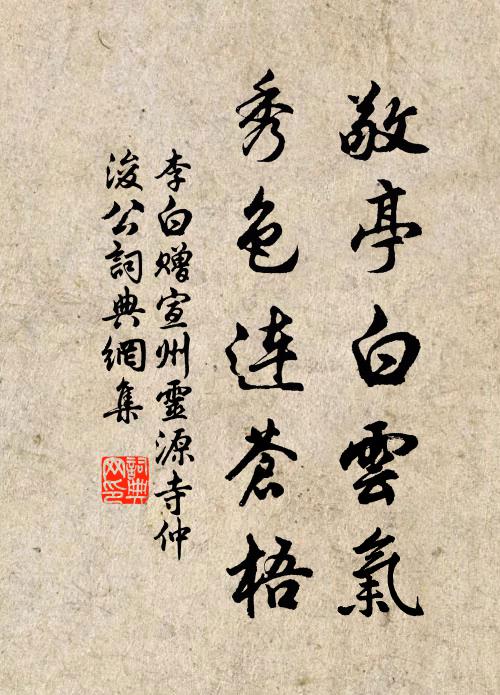 敬亭白雲氣
秀色連蒼梧
李白贈宣州靈源寺仲
浚公詞典網集
詞典
网印